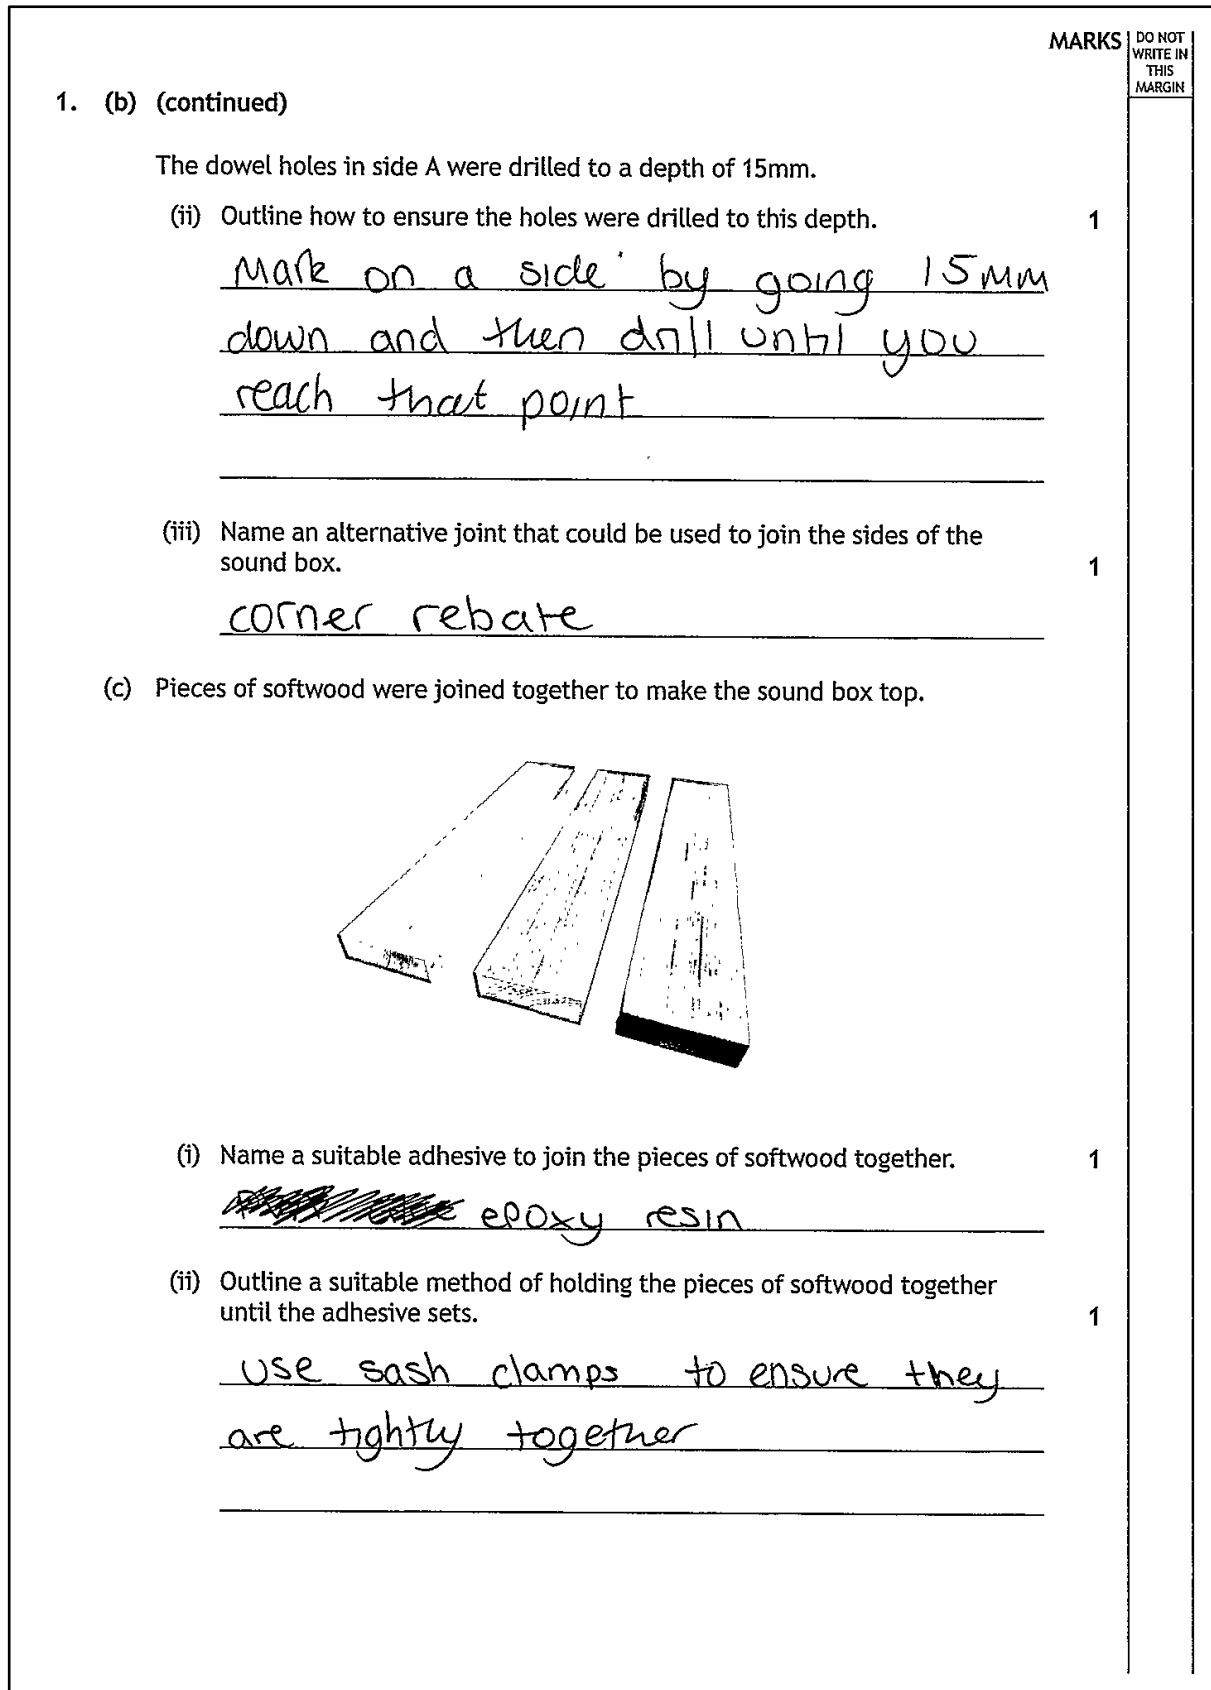 MARKS
DO NOT
WRITE IN
THIS
MARGIN
1. (b) (continued)
The dowel holes in side A were drilled to a depth of 15mm.
(ii) Outline how to ensure the holes were drilled to this depth. 1
Mark on a side by going 15mm
down and then drill until you
reach that point
(iii) Name an alternative joint that could be used to join the sides of the
sound box. 1
corner rebate
(c) Pieces of softwood were joined together to make the sound box top.
(i) Name a suitable adhesive to join the pieces of softwood together. 1
epoxy resin
(ii) Outline a suitable method of holding the pieces of softwood together
until the adhesive sets. 1
use sash clamps to ensure they
are tightly together